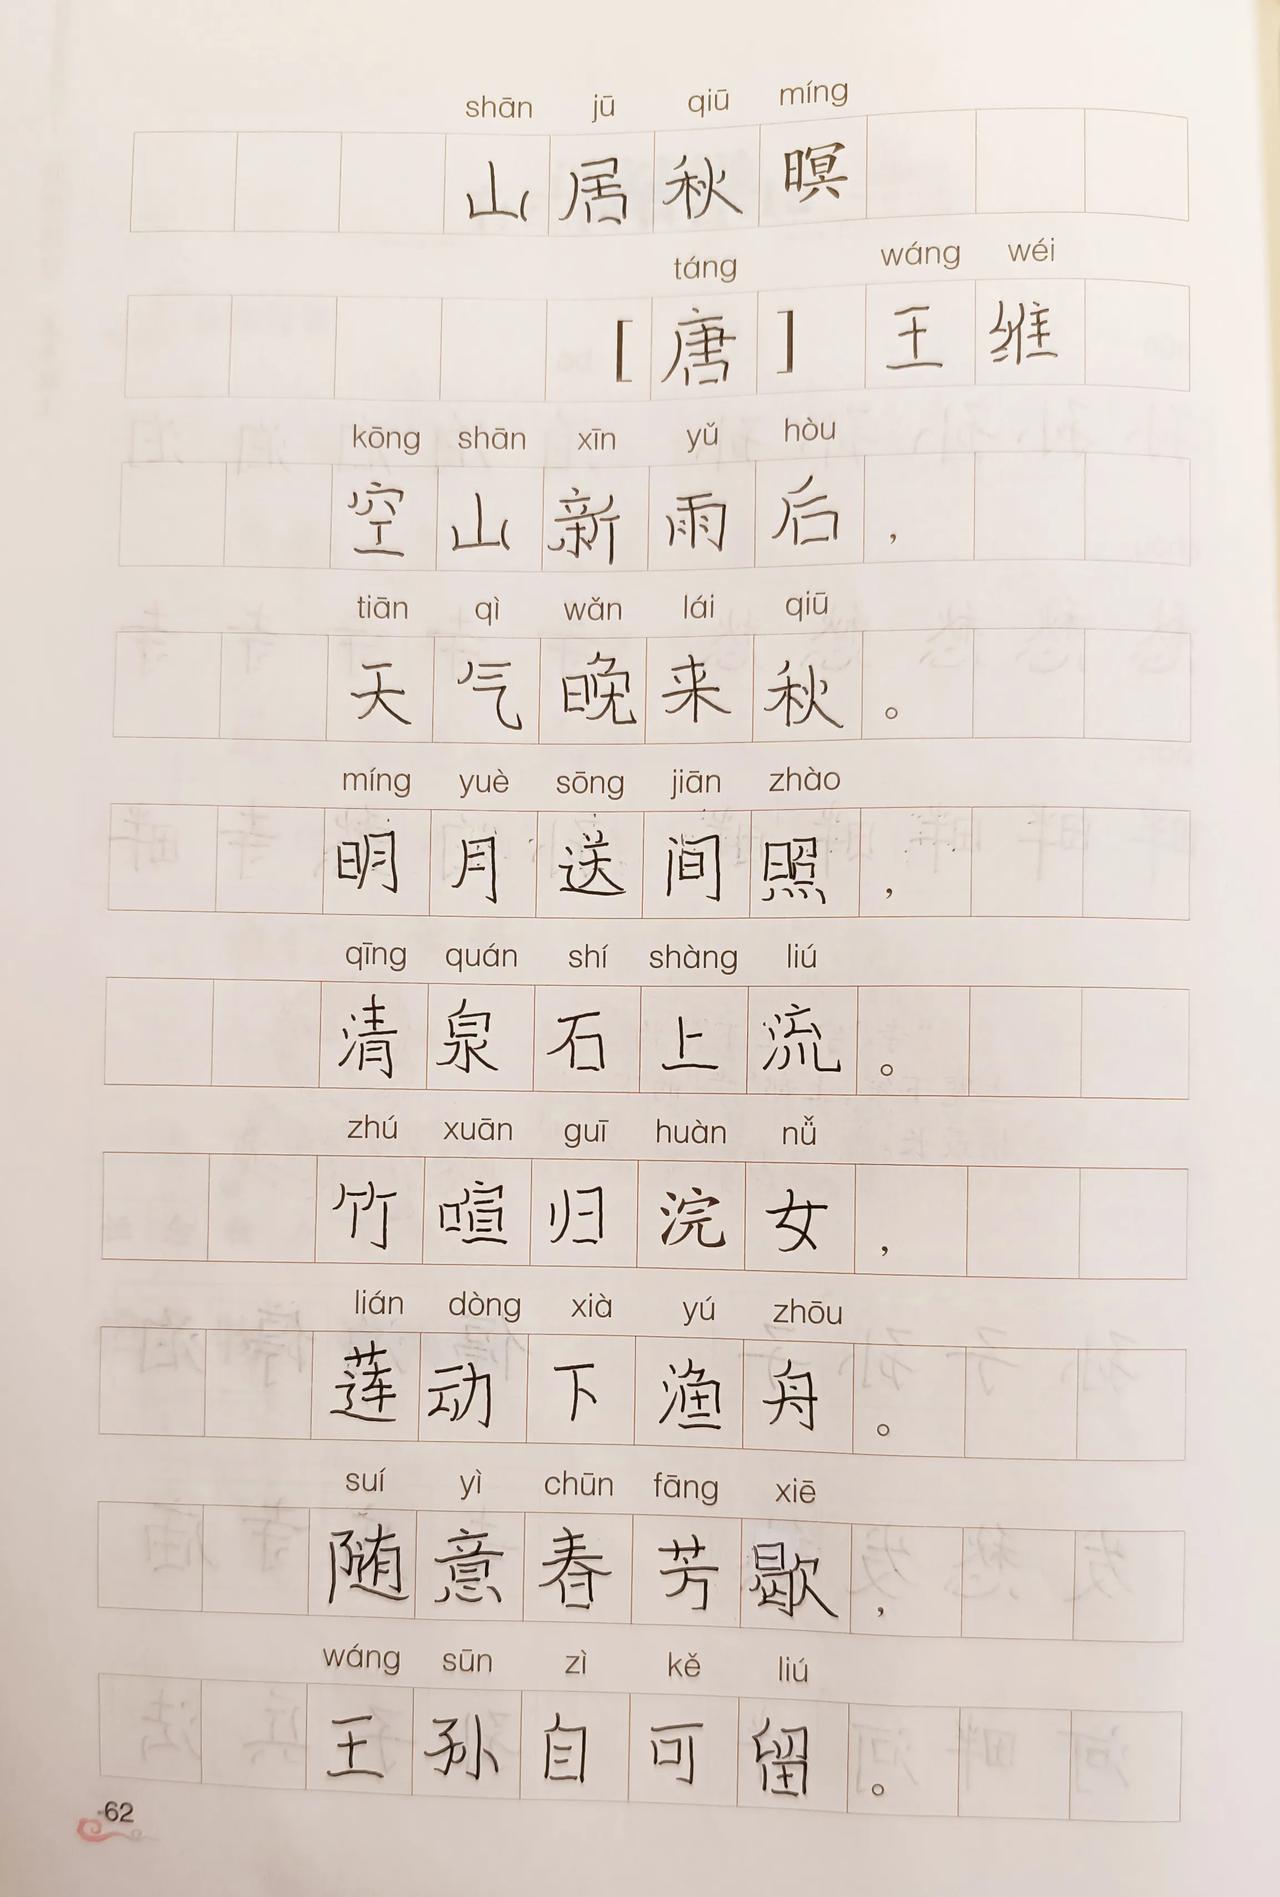 shān jū qiū míng
山居秋暝
táng wáng wéi
[唐] 王维
kōng shān xīn yǔ hòu
空山新雨后，
tiān qì wǎn lái qiū
天气晚来秋。
míng yuè sōng jiān zhào
明月送间照，
qīng quán shí shàng liú
清泉石上流。
zhú xuān guī huàn nǚ
竹喧归浣女，
lián dòng xià yú zhōu
莲动下渔舟。
suí yì chūn fāng xiē
随意春芳歇，
wáng sūn zì kě liú
王孙自可留。
62